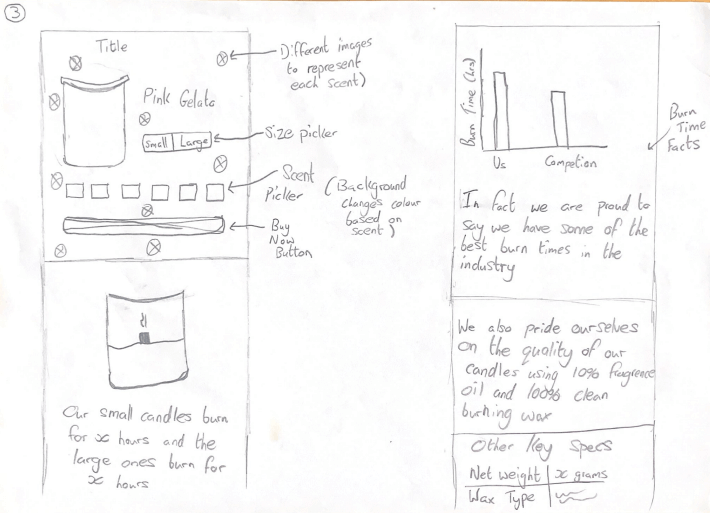 3
Title
Different images
to represent
each scent)
Pink Gelato
Small Large
Size picker
Scent
Picker
(Background
changes colour
based on
scent)
Buy
Now
Button
Our small candles burn
for x hours and the
large ones burn for
x hours
Burn Time (hrs)
Us Competion
Burn
Time
Facts
In fact we are proud to
say we have some of the
best burn times in the
industry
We also pride ourselves
on the quality of our
candles using 10% fragrence
oil and 100% clean
burning wax
Other Key Specs
Net weight x grams
Wax Type